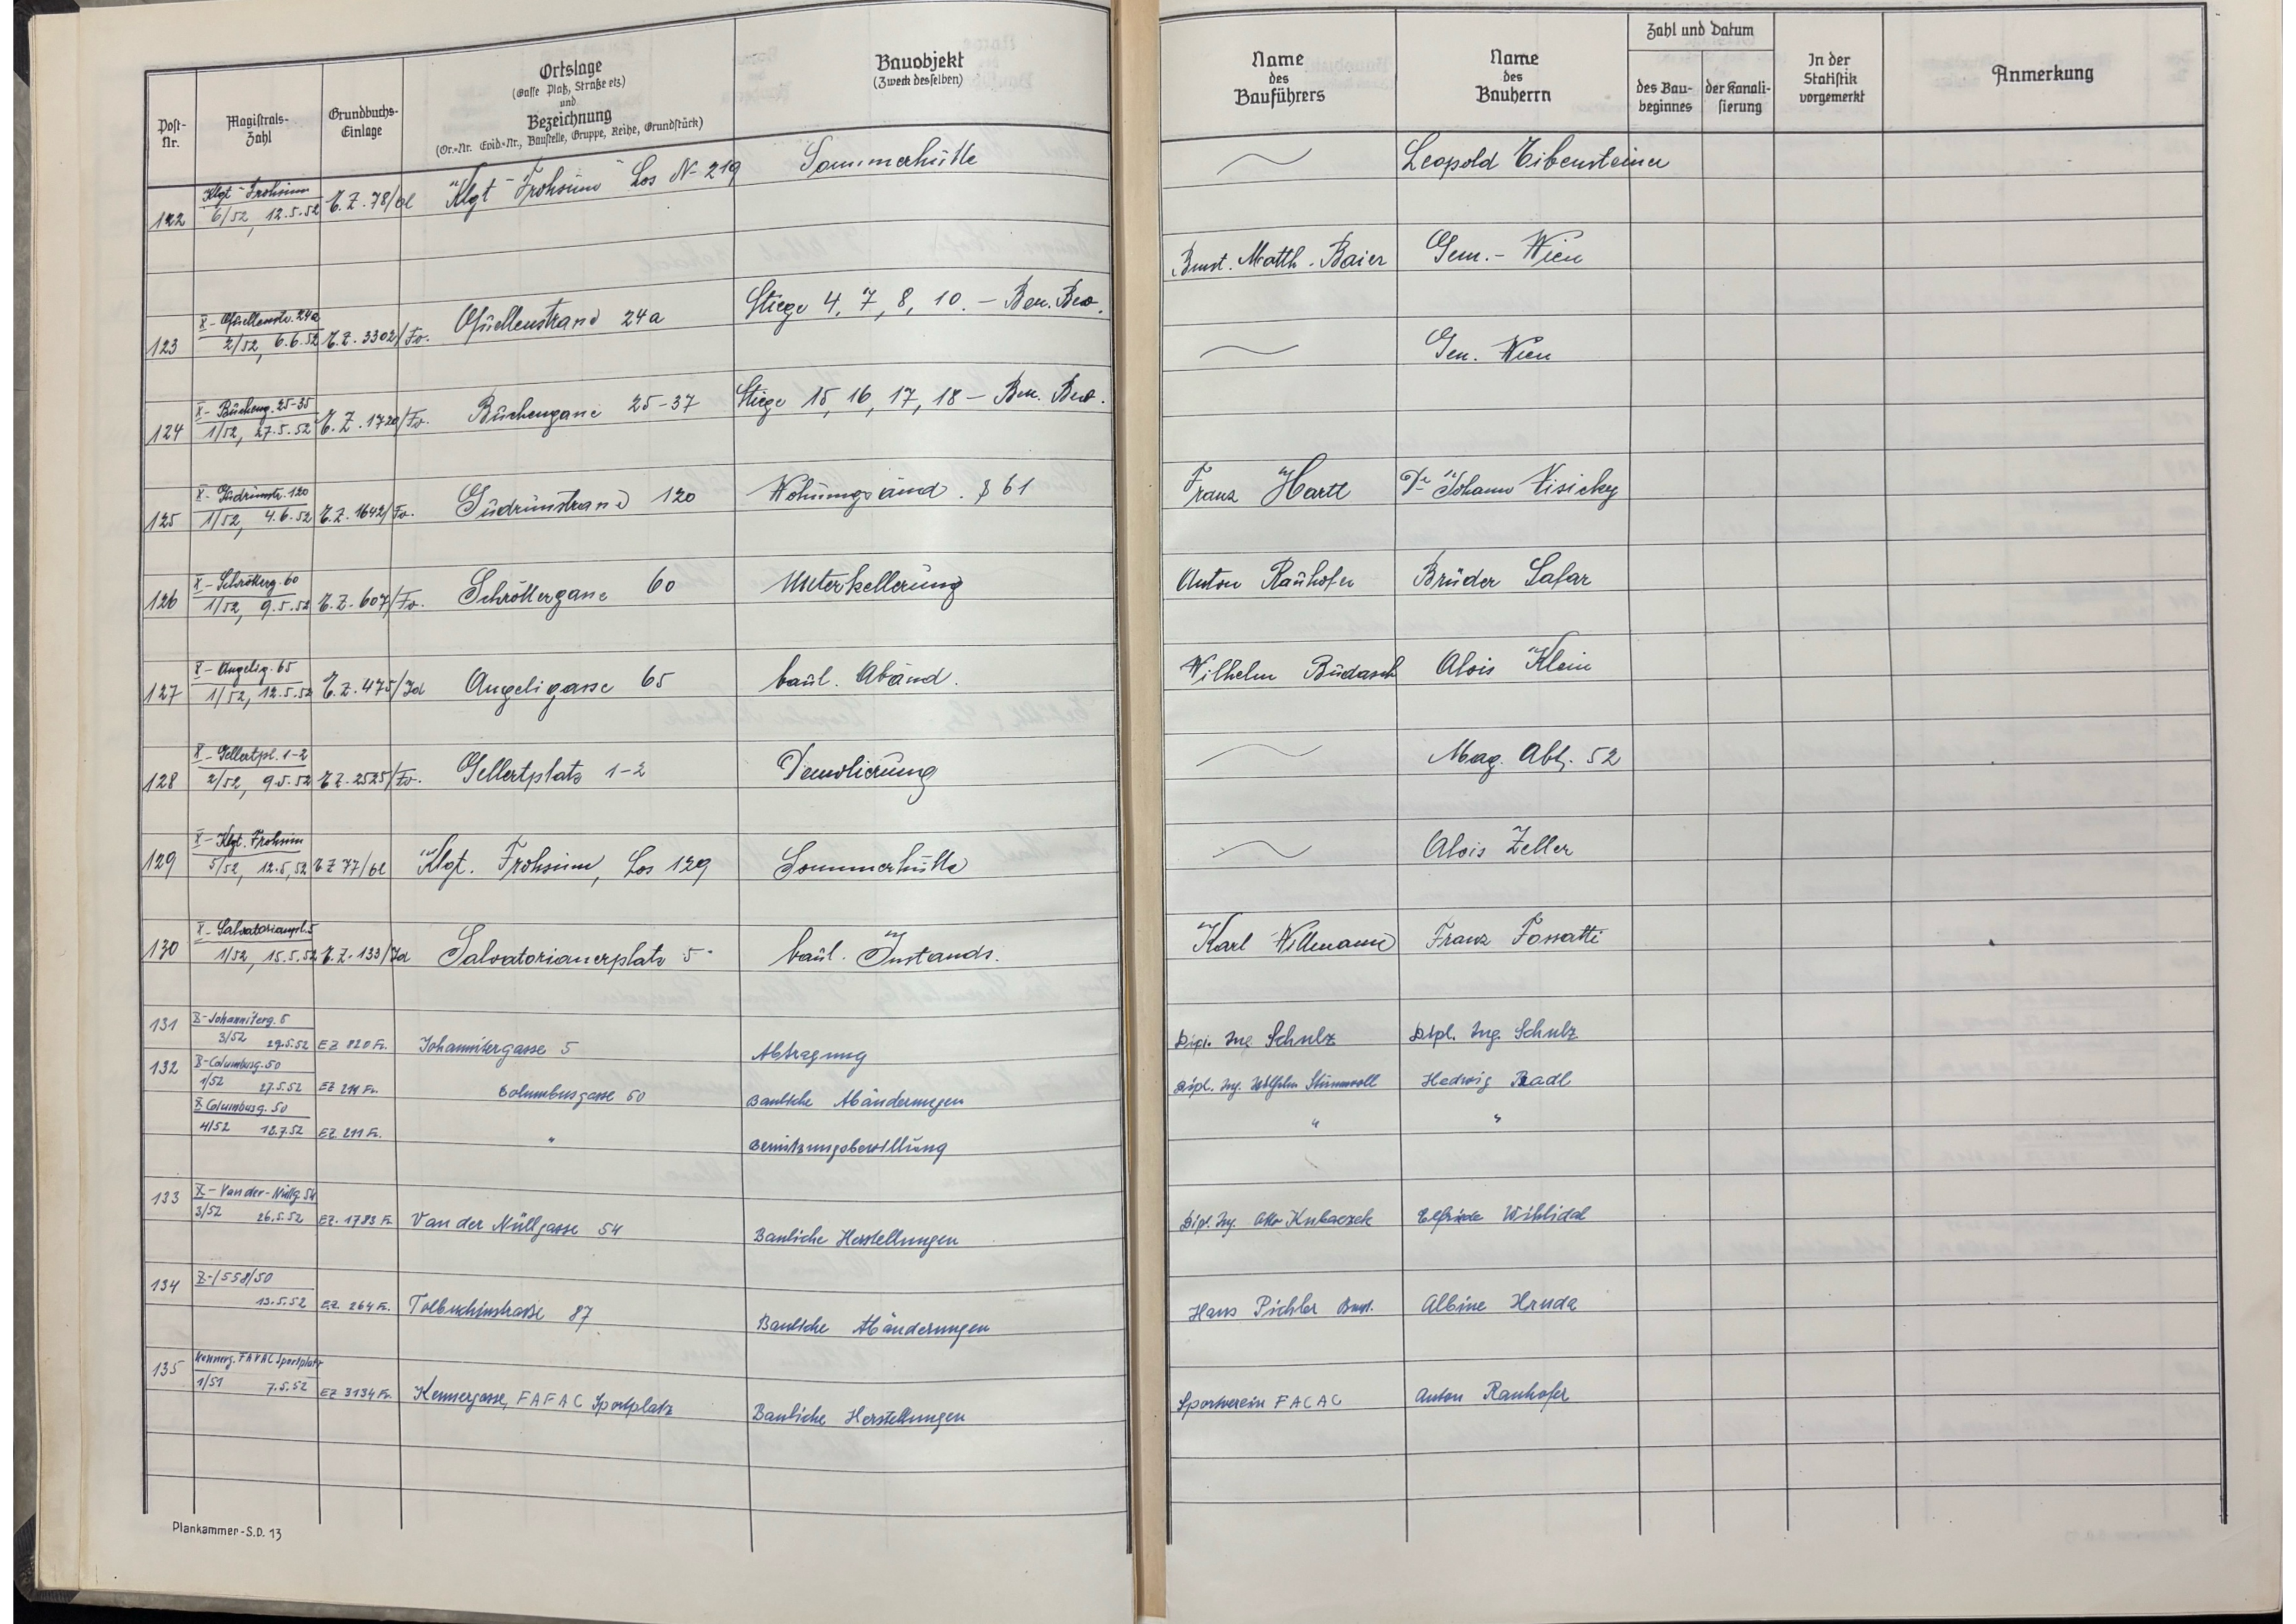 Post-Nr. Magistrats-Zahl Grundbuchs-Einlage Ortslage (Gasse Platz, Straße etz) und Bezeichnung (Or.-Nr. Evid.-Nr., Baustelle, Gruppe, Reihe, Grundstück) Bauobjekt (Zweck desselben) Name des Bauführers Name des Bauherrn Zahl und Datum des Bau-beginnes der Kanali-sierung In der Statistik vorgemerkt Anmerkung
Klgt Frohsinn
122 6/52, 12.5.52 E.Z. 78/ol Klgt "Frohsinn" Los N- 219 Sommerhütte Leopold Eibensteiner
X- Quellenstr. 24a
123 2/52, 6.6.52 E.Z. 3302/Fv. Quellenstrasse 24a Stiege 4, 7, 8, 10. - Ben. Bew. Bmst. Matth. Baier Gem. - Wien
X- Bürheng. 25-35
124 1/52, 27.5.52 E.Z. 1720/Fv. Bürhengasse 25-37 Stiege 15, 16, 17, 18 - Ben. Bew. Gem. Wien
X- Gudrunstr. 120
125 1/52, 4.6.52 E.Z. 1642/Fv. Gudrunstrasse 120 Wohnungsänd. § 61 Franz Hartl Dr Johann Visicky
X- Schrötterg. 60
126 1/52, 9.5.52 E.Z. 607/Fv. Schröttergasse 60 Unterkellerung Anton Rauhofer Brüder Safar
X- Angelig. 65
127 1/52, 12.5.52 E.Z. 475/Id Angeligasse 65 baul. Abänd. Wilhelm Budasch Alois Klein
X- Gellertpl. 1-2
128 2/52, 9.5.52 E.Z. 2525/Fv. Gellertplatz 1-2 Demolierung Mag. Abt. 52
X- Klgt. Frohsinn
129 5/52, 12.5.52 E.Z 77/ol Klgt. Frohsinn, Los 129 Sommerhütte Alois Zeller
X- Salvatorianerpl. 5
130 1/52, 15.5.52 E.Z. 133/Id Salvatorianerplatz 5 baul. Instands. Karl Willmann Franz Fossatti
131 X-Johanniterg. 5
3/52 29.5.52 EZ 820 Fr. Johannitergasse 5 Abtragung Dipl. Ing. Schulz Dipl. Ing. Schulz
132 X-Columbusg. 50
1/52 27.5.52 EZ 211 Fr. Columbusgasse 50 Bauliche Abänderungen Dipl. Ing. Wilhelm Hedwig Radl
X Columbusg. 50
4/52 18.7.52 EZ 211 Fr. " Benützungsbewilligung " "
133 X- Van der-Nüllg 54
3/52 26.5.52 EZ. 1783 Fr. Van der Nüllgasse 54 Bauliche Herstellungen Dipl. Ing. Otto Kubaczek Elfriede Wihlidal
134 X-/558/50
13.5.52 EZ. 264 Fr. Tolbuchinstraße 87 Bauliche Abänderungen Hans Pichler Bmst. Albine Hruda
135 Kennerg. FAVAC Sportplatz
1/51 7.5.52 EZ 3134 Fr. Kennergasse, FAFAC Sportplatz Bauliche Herstellungen Sportverein FACAC Anton Rauhofer
Plankammer - S.D. 13